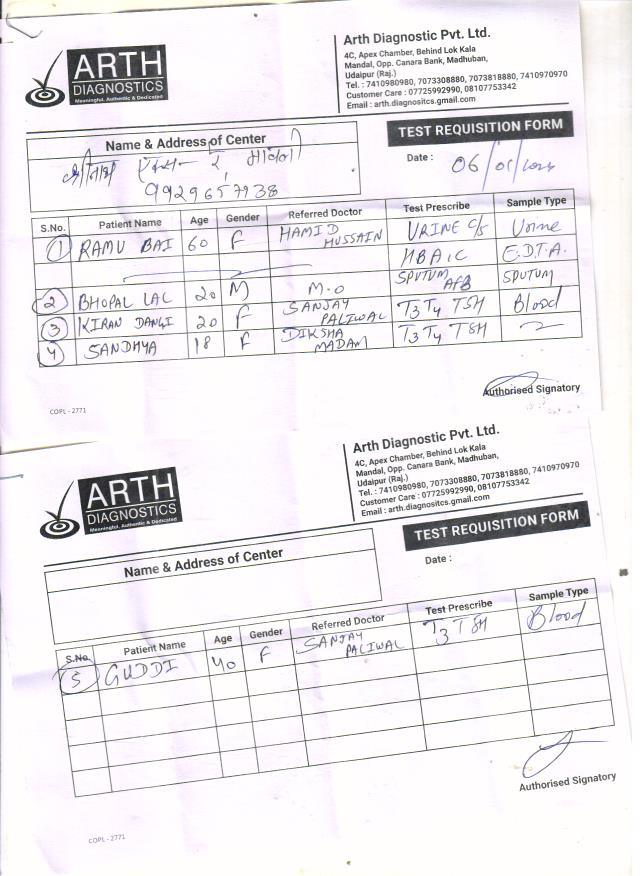 ARTH
DIAGNOSTICS
Meaningful, Authentic & Dedicated
Arth Diagnostic Pvt. Ltd.
4C, Apex Chamber, Behind Lok Kala
Mandal, Opp. Canara Bank, Madhuban,
Udaipur (Raj.)
Tel. : 7410980980, 7073308880, 7073818880, 7410970970
Customer Care : 07725992990, 08107753342
Email : arth.diagnositcs.gmail.com
TEST REQUISITION FORM
Name & Address of Center
Date : 06/01/2024
9929657938
S.No. Patient Name Age Gender Referred Doctor Test Prescribe Sample Type
1 RAMU BAI 60 F HAMID HUSSAIN URINE C/S Urine
HBA1C E.D.T.A.
SPUTUM AFB SPUTUM
2 BHOPAL LAL 20 M M.O
3 KIRAN DANGI 20 F SANJAY PALIWAL T3 T4 TSH Blood
4 SANDHYA 18 F DIKSHA MADAM T3 T4 TSH
Authorised Signatory
COPL - 2771
ARTH
DIAGNOSTICS
Meaningful, Authentic & Dedicated
Arth Diagnostic Pvt. Ltd.
4C, Apex Chamber, Behind Lok Kala
Mandal, Opp. Canara Bank, Madhuban,
Udaipur (Raj.)
Tel. : 7410980980, 7073308880, 7073818880, 7410970970
Customer Care : 07725992990, 08107753342
Email : arth.diagnositcs.gmail.com
TEST REQUISITION FORM
Name & Address of Center
Date :
S.No. Patient Name Age Gender Referred Doctor Test Prescribe Sample Type
5 GUDDI 40 F SANJAY PALIWAL T3 TSH Blood
Authorised Signatory
COPL - 2771